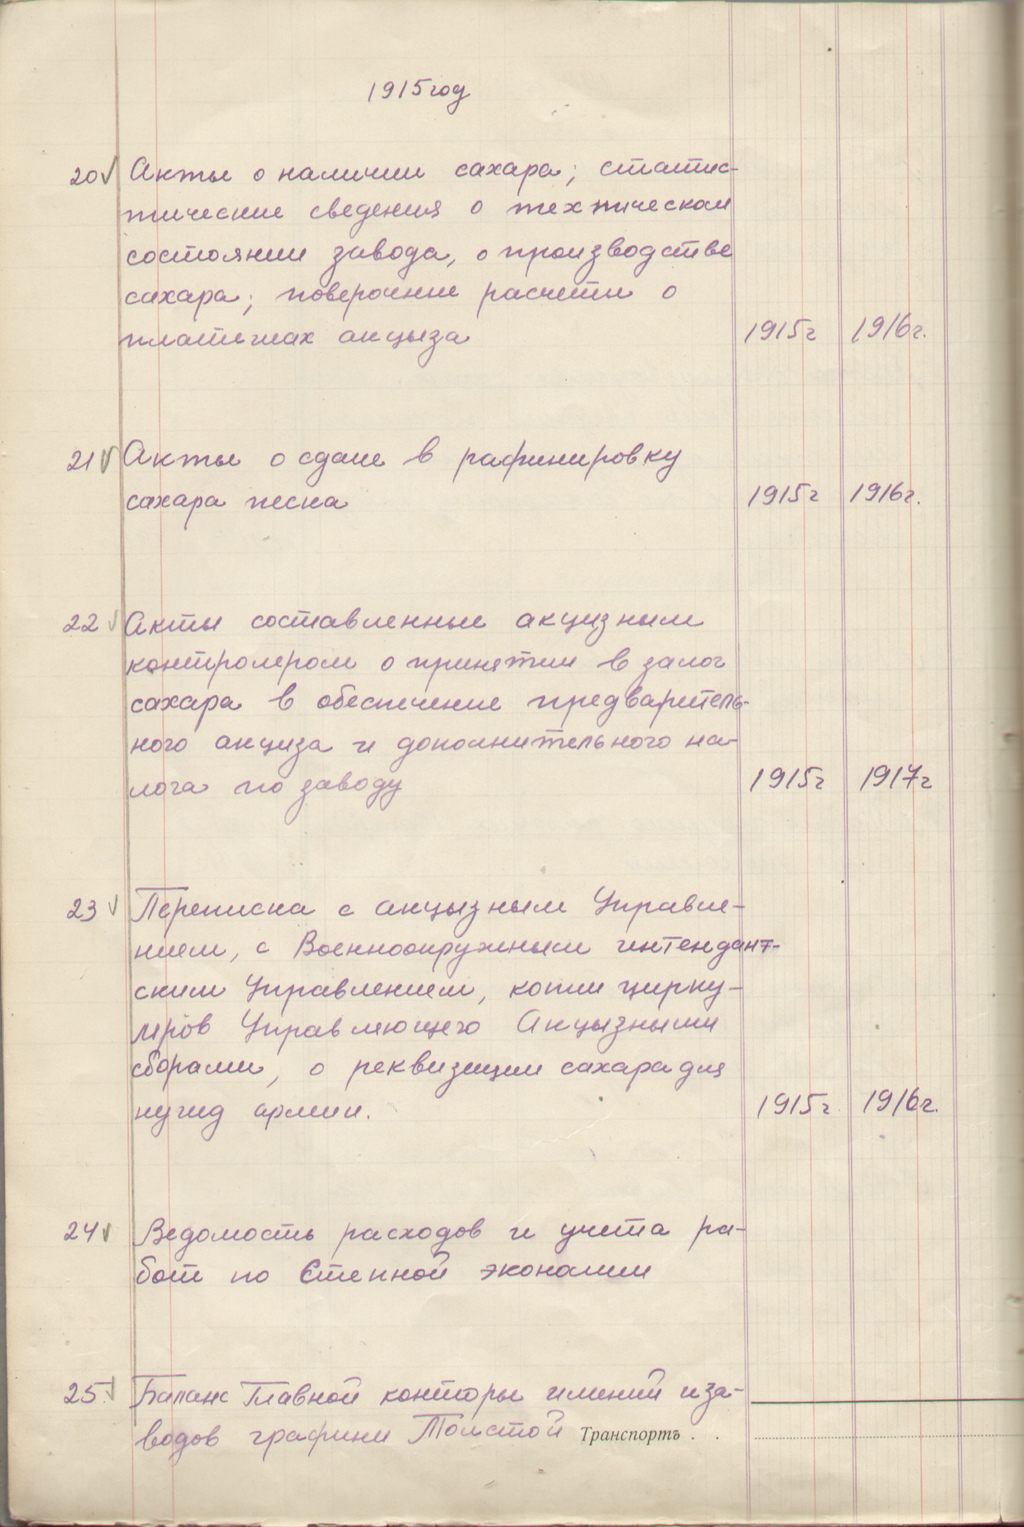 1915 год
20 Акты о наличии сахара; статис-
тические сведения о техническом
состоянии завода, о производстве
сахара; поверочные расчеты о
платежах акцыза 1915г 1916г.
21 Акты о сдаче в рафинировку
сахара песка 1915г 1916г.
22 Акты составленные акцизным
контролером о принятии в залог
сахара в обеспечение предваритель-
ного акциза и дополнительного на-
лога по заводу 1915г 1917г
23 Переписка с акцызным Управле-
нием, с Военноокружным интендант-
ским Управлением, копии цирку-
ляров Управляющего Акцызными
сборами, о реквизиции сахара для
нужд армии. 1915г 1916г.
24 Ведомость расходов и учета ра-
бот по Степной экономии
25 Баланс Главной конторы имений и за-
водов графини Толстой Транспортъ . .